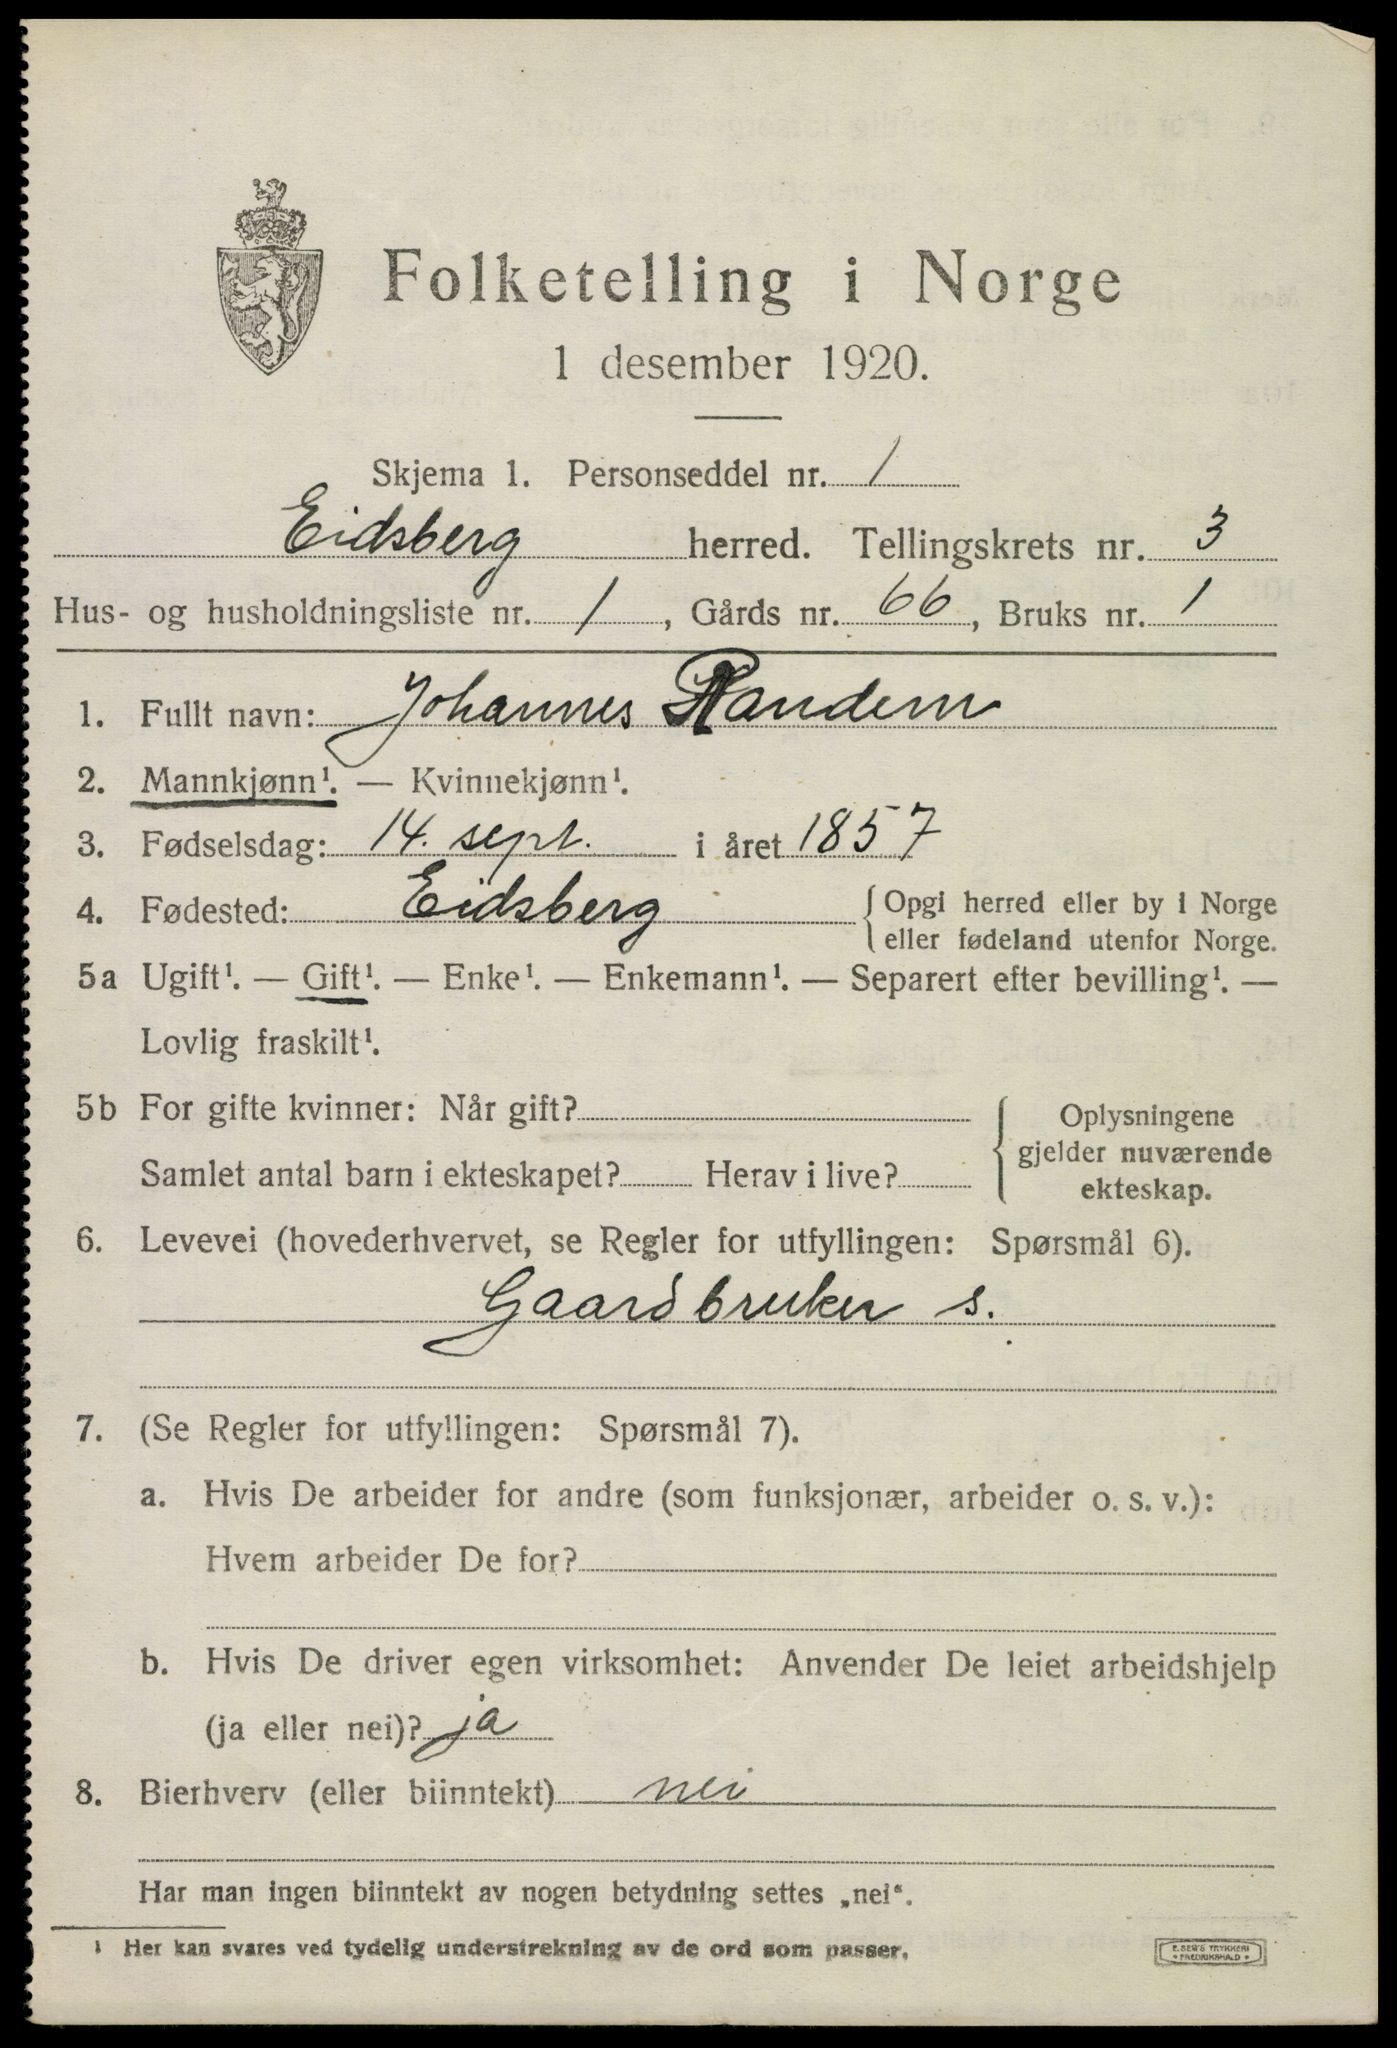 Folketelling i Norge
1 desember 1920.
Skjema 1. Personseddel nr. 1
Eidsberg herred. Tellingskrets nr. 3
Hus- og husholdningsliste nr. 1, Gårds nr. 66, Bruks nr. 1
1. Fullt navn: Johannes Randem
2. Mannkjønn¹. — Kvinnekjønn¹.
3. Fødselsdag: 14. sept. i året 1857
4. Fødested: Eidsberg { Opgi herred eller by i Norge
eller fødeland utenfor Norge.
5a Ugift¹. — Gift¹. — Enke¹. — Enkemann¹. — Separert efter bevilling¹. —
Lovlig fraskilt¹.
5b For gifte kvinner: Når gift?
Samlet antal barn i ekteskapet? Herav i live?
Oplysningene
gjelder nuværende
ekteskap.
6. Levevei (hovederhvervet, se Regler for utfyllingen: Spørsmål 6).
Gaardbruker s.
7. (Se Regler for utfyllingen: Spørsmål 7).
a. Hvis De arbeider for andre (som funksjonær, arbeider o. s. v.):
Hvem arbeider De for?
b. Hvis De driver egen virksomhet: Anvender De leiet arbeidshjelp
(ja eller nei)? ja
8. Bierhverv (eller biinntekt) nei
Har man ingen biinntekt av nogen betydning settes „nei“.
¹ Her kan svares ved tydelig understrekning av de ord som passer.
E. SEM'S TRYKKERI
• FREDRIKSHALD •